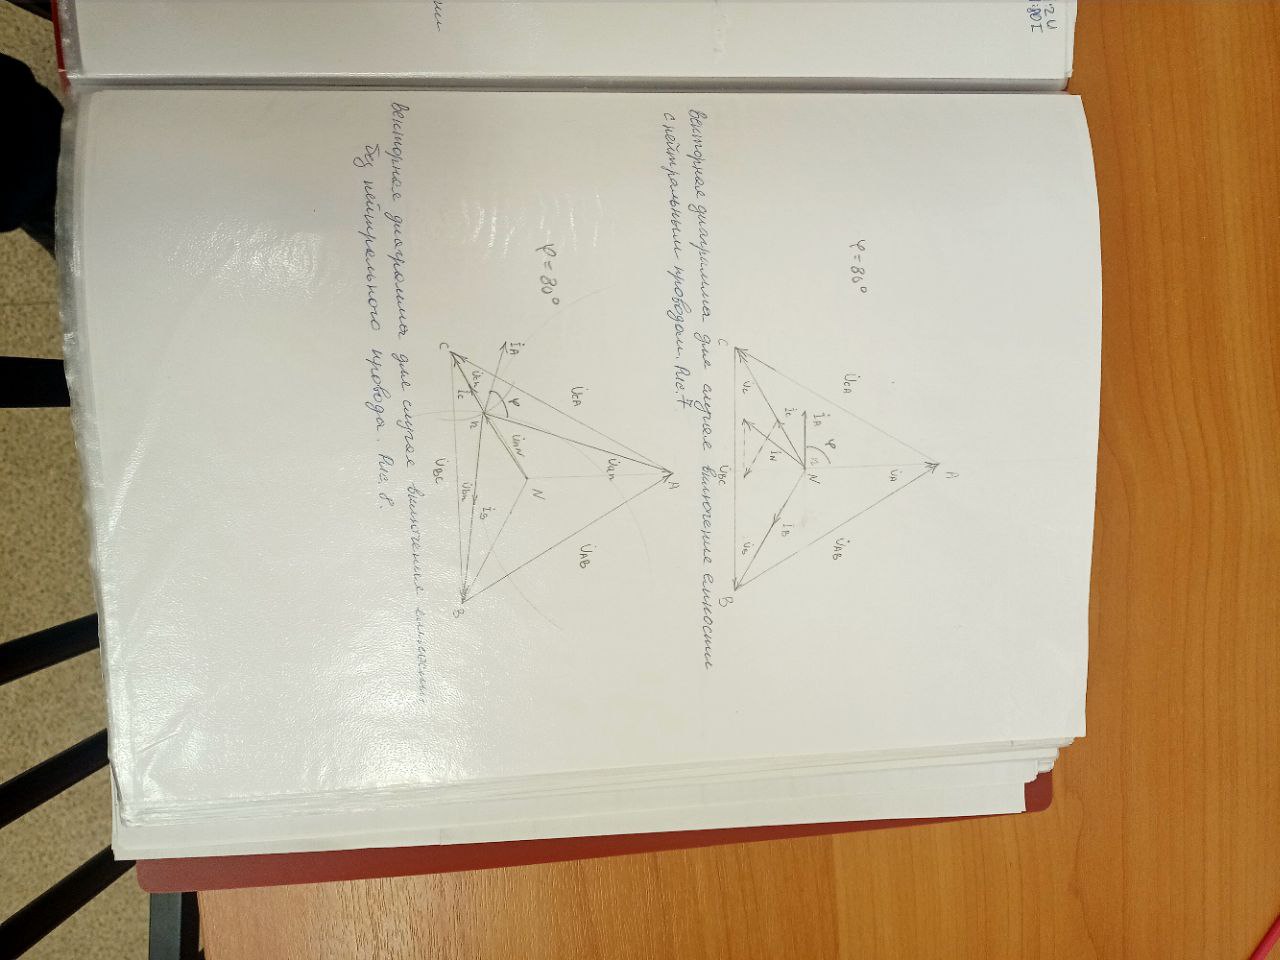 A
U̇A
φ = 80°
U̇CA
U̇AB
φ
İA
n
N
İC
İN
İB
U̇C
U̇B
C
U̇BC
B
Векторная диаграмма для случая включение емкости
с нейтральным проводом. Рис. 7
A
U̇an
U̇CA
U̇AB
φ = 80°
N
İA
φ
U̇nN
U̇cn
İC
n
İB
U̇bn
C
B
U̇BC
Векторная диаграмма для случая включение емкости
без нейтрального провода. Рис. 8.